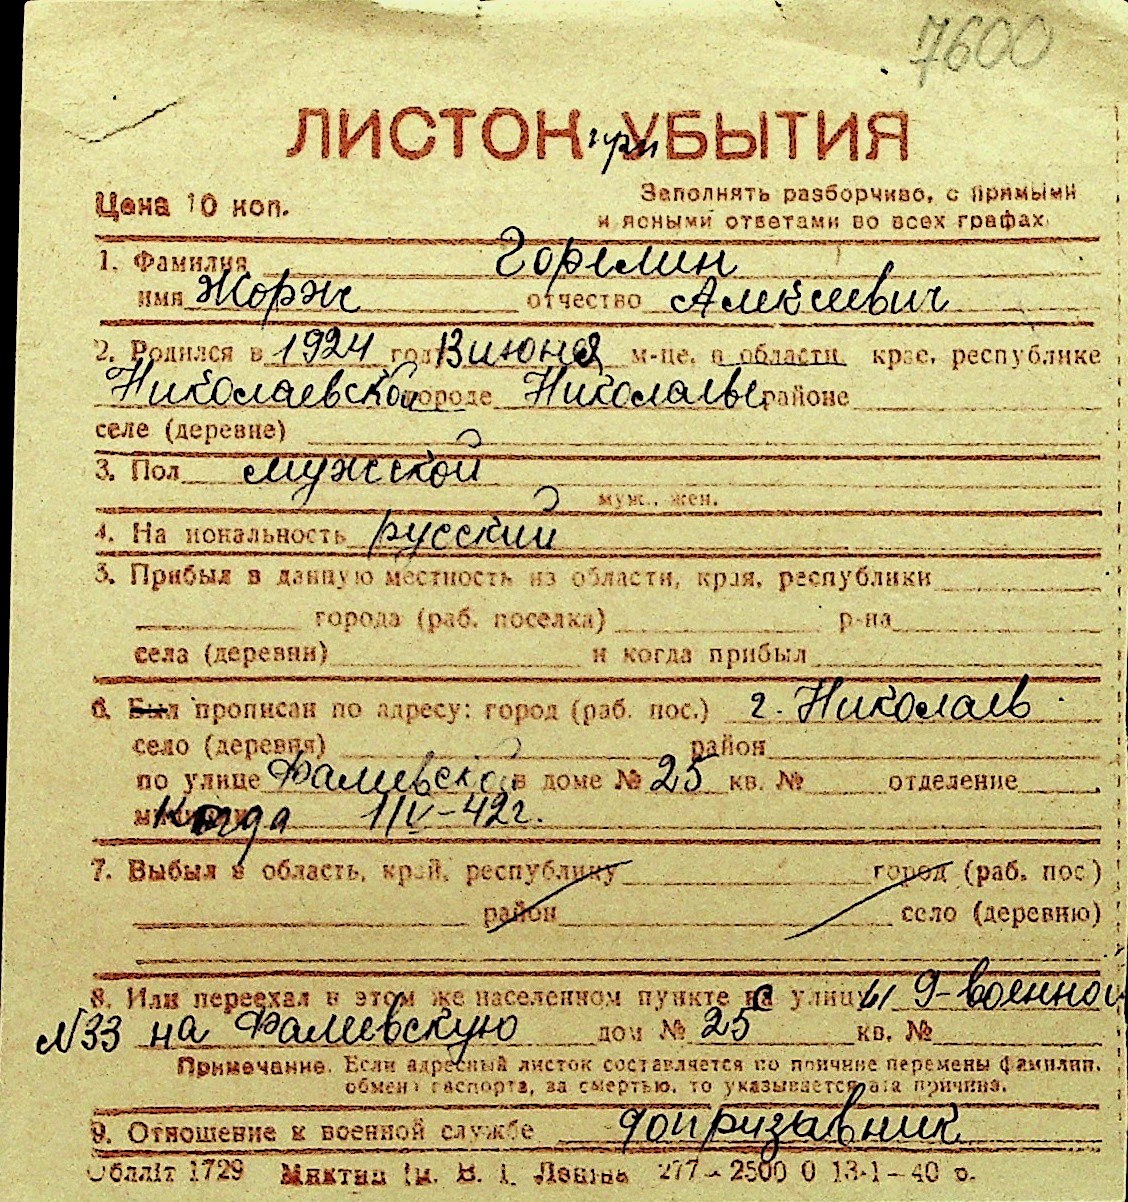 7600
ЛИСТОК УБЫТИЯ
при
Цена 10 коп.
Заполнять разборчиво, с прямыми
и ясными ответами во всех графах
1. Фамилия Горелин
имя Жорж отчество Алексеевич
2. Родился в 1924 год 13 июня м-це, в области крае, республике
Николаевской городе Николаеве районе
селе (деревне)
3. Пол мужской
муж., жен.
4. На иональность русский
5. Прибыл в данную местность из области, края, республики
города (раб. поселка) р-на
села (деревни) и когда прибыл
6. Был прописан по адресу: город (раб. пос.) г. Николаев
село (деревня) район
по улице Фалиевской в доме № 25 кв. № отделение
Когда 1/IV-42г.
7. Выбыл в область, край, республику город (раб. пос)
район село (деревню)
8. Или переехал в этом же населенном пункте с улицы 9-военной
N33 на Фалиевскую дом № 25 кв. №
Примечание. Если адресный листок составляется по причине перемены фамилии,
обмена паспорта, за смертью, то указывается эта причина.
9. Отношение к военной службе допризывник
Облліт 1729 ім. В. І. Леніна 277-2500 0 13-1-40 р.